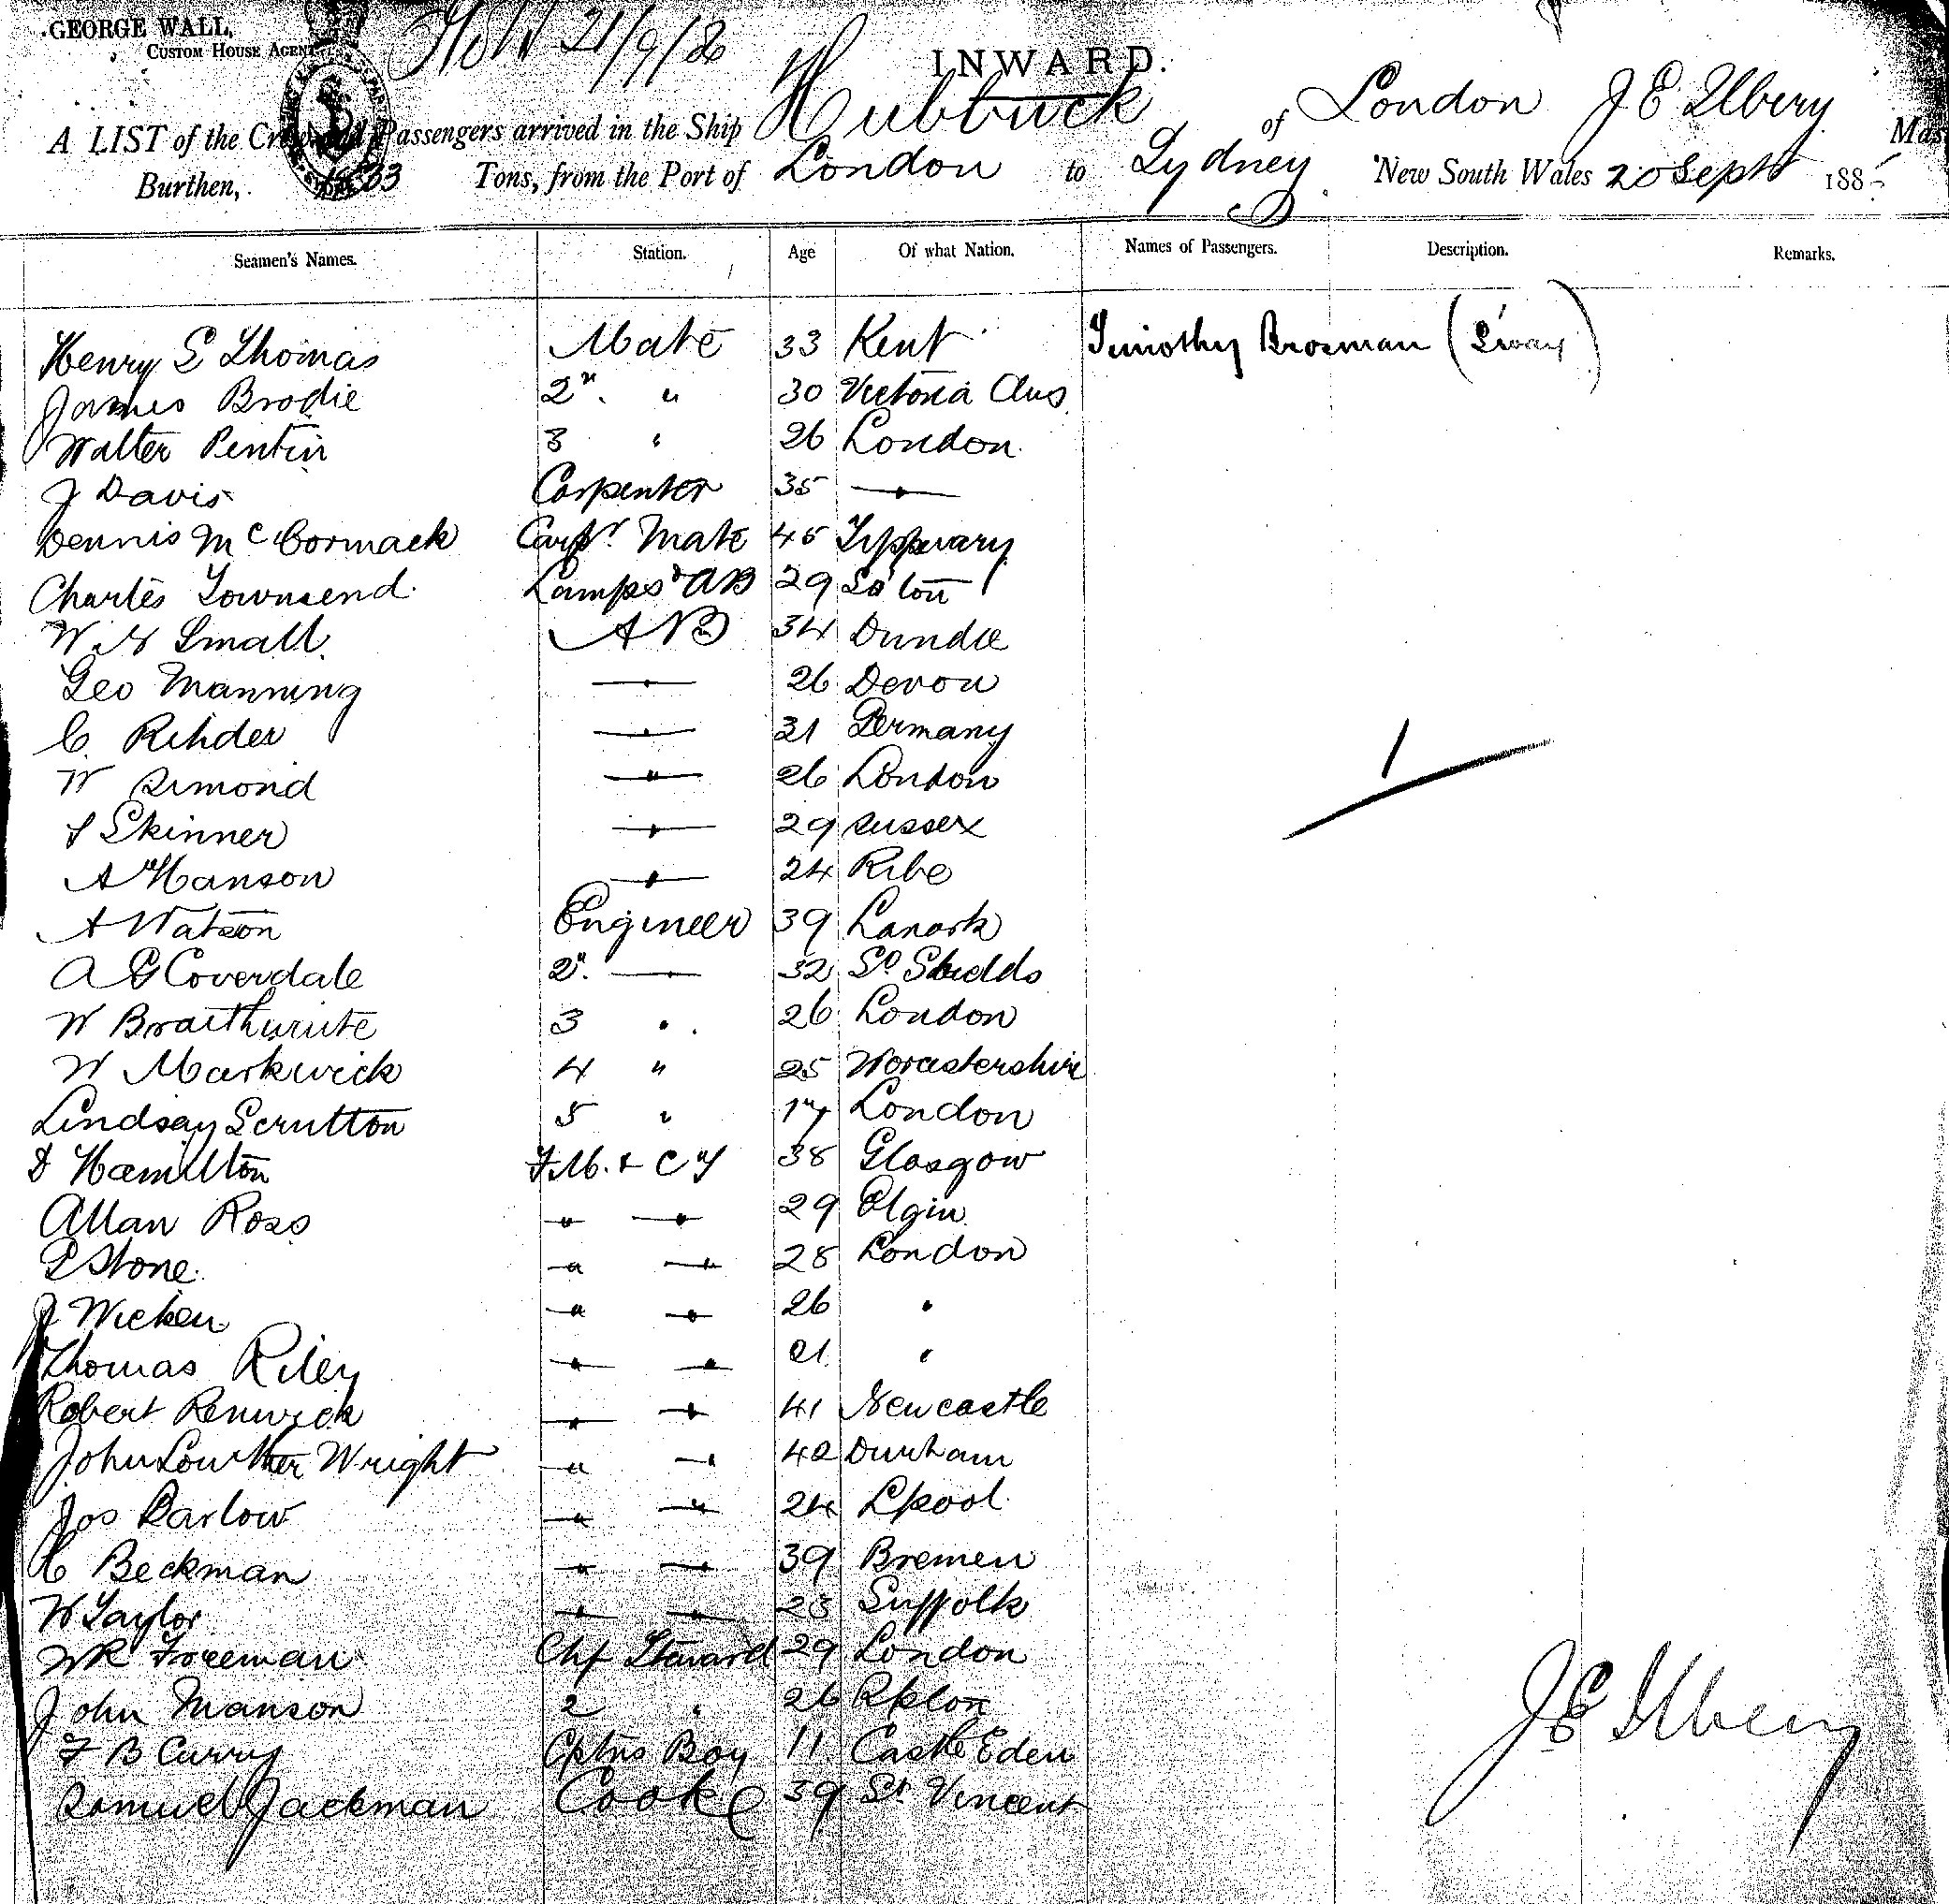 GEORGE WALL,
CUSTOM HOUSE AGENT
21/9/86
INWARD.
A LIST of the Crew and Passengers arrived in the Ship Hubbuck of London J E Ilbery Mas
Burthen, Tons, from the Port of London to Sydney New South Wales 20 Sept 188
Seamen's Names. Station. Age Of what Nation. Names of Passengers. Description. Remarks.
Henry E Thomas Mate 33 Kent Timothy Brosman (S'way)
James Brodie 2n. " 30 Victoria Aus
Walter Pentin 3 " 26 London
J Davis Carpenter 35 — " —
Dennis McCormack Carpr. Mate 45 Tipperary
Charles Townsend Lamps & AB 29 So'ton
W H Small AB 34 Dundee
Geo Manning — " — 26 Devon
C Rihder — " — 31 Germany
W Simond — " — 26 London
Skinner — " — 29 Sussex
A Hanson — " — 24 Ribe
A Watson Engineer 39 Lanark
A G Coverdale 2n. — " — 32 So Shields
W Braithwaite 3 " 26 London
W Markwick 4 " 25 Worcestershire
Lindsay Scrutton 5 " 17 London
D Hamilton F.M. & Cy 38 Glasgow
Allan Ross " " 29 Elgin
E Stone " " 28 London
J Wicken " " 26 "
Thomas Riley " " 21 "
Robert Renwick " " 41 Newcastle
John Lowther Wright " " 42 Durham
Jos Barlow " " 24 Lpool
C Beckman " " 39 Bremen
W Taylor " " 23 Suffolk
WR Foreman Chf Steward 29 London
John Manson 2 " 26
F B Curry Cptns Boy 11 Castle Eden
Samuel Jackman Cook 39 St Vincent
1
J E Ilbery